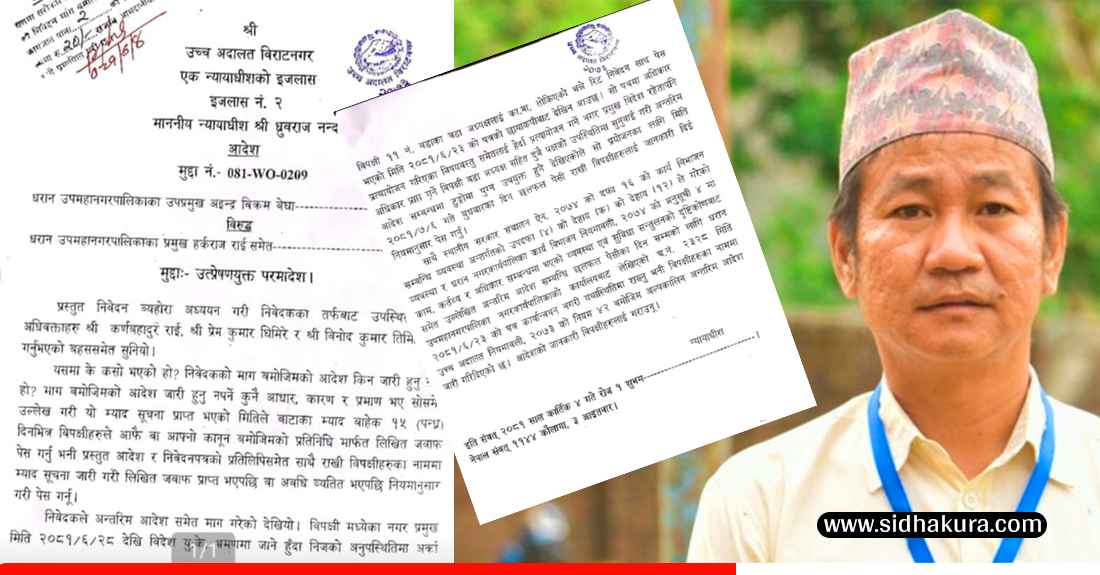 श्री
उच्च अदालत विराटनगर
एक न्यायाधीशको इजलास
इजलास नं. २
माननीय न्यायाधीश श्री ध्रुवराज नन्द
आदेश
मुद्दा नं.- 081-WO-0209
धरान उपमहानगरपालिकाका उपप्रमुख अइन्द्र विक्रम बेघा
विरुद्ध
धरान उपमहानगरपालिकाका प्रमुख हर्कराज राई समेत
मुद्दाः- उत्प्रेषणयुक्त परमादेश।
प्रस्तुत निवेदन व्यहोरा अध्ययन गरी निवेदकका तर्फबाट उपस्थि
अधिवक्ताहरु श्री कर्णबहादुर राई, श्री प्रेम कुमार घिमिरे र श्री विनोद कुमार
गर्नुभएको बहससमेत सुनियो।
यसमा के कसो भएको हो? निवेदकको माग बमोजिमको आदेश किन जारी हुनु
हो? माग बमोजिमको आदेश जारी हुनु नपर्ने कुनै आधार, कारण र प्रमाण भए सोसमे
उल्लेख गरी यो म्याद सूचना प्राप्त भएको मितिले बाटाका म्याद बाहेक १५ (पन्ध्र)
दिनभित्र विपक्षीहरुले आफै वा आफ्नो कानून बमोजिमको प्रतिनिधि मार्फत लिखित जवाफ
पेस गर्नु भनी प्रस्तुत आदेश र निवेदनपत्रको प्रतिलिपिसमेत साथै राखी विपक्षीहरुका नाममा
म्याद सूचना जारी गरी लिखित जवाफ प्राप्त भएपछि वा अवधि व्यतित भएपछि नियमानुसार
गरी पेस गर्नू।
निवेदकले अन्तरिम आदेश समेत माग गरेको देखियो। विपक्षी मध्येका नगर प्रमुख
मिति २०८१/६/२८ देखि विदेश यु.के. भ्रमणमा जाने हुँदा निजको अनुपस्थितिमा अर्का
1/1
उच्च अदालत विराटनगर
२०७३
विपक्षी ११ नं. वडाका वडा अध्यक्षलाई का.वा. तोकिएको भन्ने रिट निवेदन साथ पेस
भएको मिति २०८१/६/२३ को पत्रको छायाकपीबाट देखिन आउछ। सो पत्रमा अधिकार
प्रत्यायोजन गरिएका विषयवस्तु समेतलाई हेर्दा प्रत्यायोजन गर्ने नगर प्रमुख विदेश रहेतापनि
अधिकार प्राप्त गर्ने विपक्षी वडा अध्यक्ष सहित दुवै पक्षको उपस्थितिमा सुनुवाई गरी अन्तरिम
आदेश सम्बन्धमा टुङ्गोमा पुग्न उपयुक्त हुने देखिएकोले सो प्रयोजनका लागि मिति
२०८१/७/६ गते बुधबारका दिन छलफल पेसी राखी विपक्षीहरुलाई जानकारी दिई
नियमानुसार पेस गर्नु।
साथै स्थानीय सरकार संचालन ऐन, २०७४ को दफा १६ को कार्य विभाजन
सम्बन्धि व्यवस्था अन्तर्गतको उपदफा (४) को देहाय (क) को देहाय (१२) ले गरेको
व्यवस्था र धरान नगरकार्यपालिका कार्य विभाजन नियमावली, २०७४ को अनुसूची ४ मा
काम, कर्तव्य र अधिकार सम्बन्धमा भएको व्यवस्था एवं सुविधा सन्तुलनको दृष्टिकोणबाट
समेत उल्लेखित अन्तरिम आदेश सम्बन्धि छलफल पेसीका दिन सम्मको लागि धरान
उपमहानगरपालिका नगरकार्यपालिकाको कार्यालयबाट लेखिएको च.नं. २३२८ मिति
२०८१/६/२३ को पत्र कार्यान्वयन नगरी यथास्थितिमा राख्नु भनी विपक्षीहरुका नाममा
उच्च अदालत नियमावली, २०७३ को नियम ४२ बमोजिम अल्पकालिन अन्तरिम आदेश
जारी गरिदिएको छ। आदेशको जानकारी विपक्षीहरुलाई गराउनू।
न्यायाधीश
इति संवत् २०८१ साल कार्तिक ४ गते रोज १ शुभम्
नेपाल संवत् ११४४ कौलागा, ३ आइतबार।
www.sidhakura.com